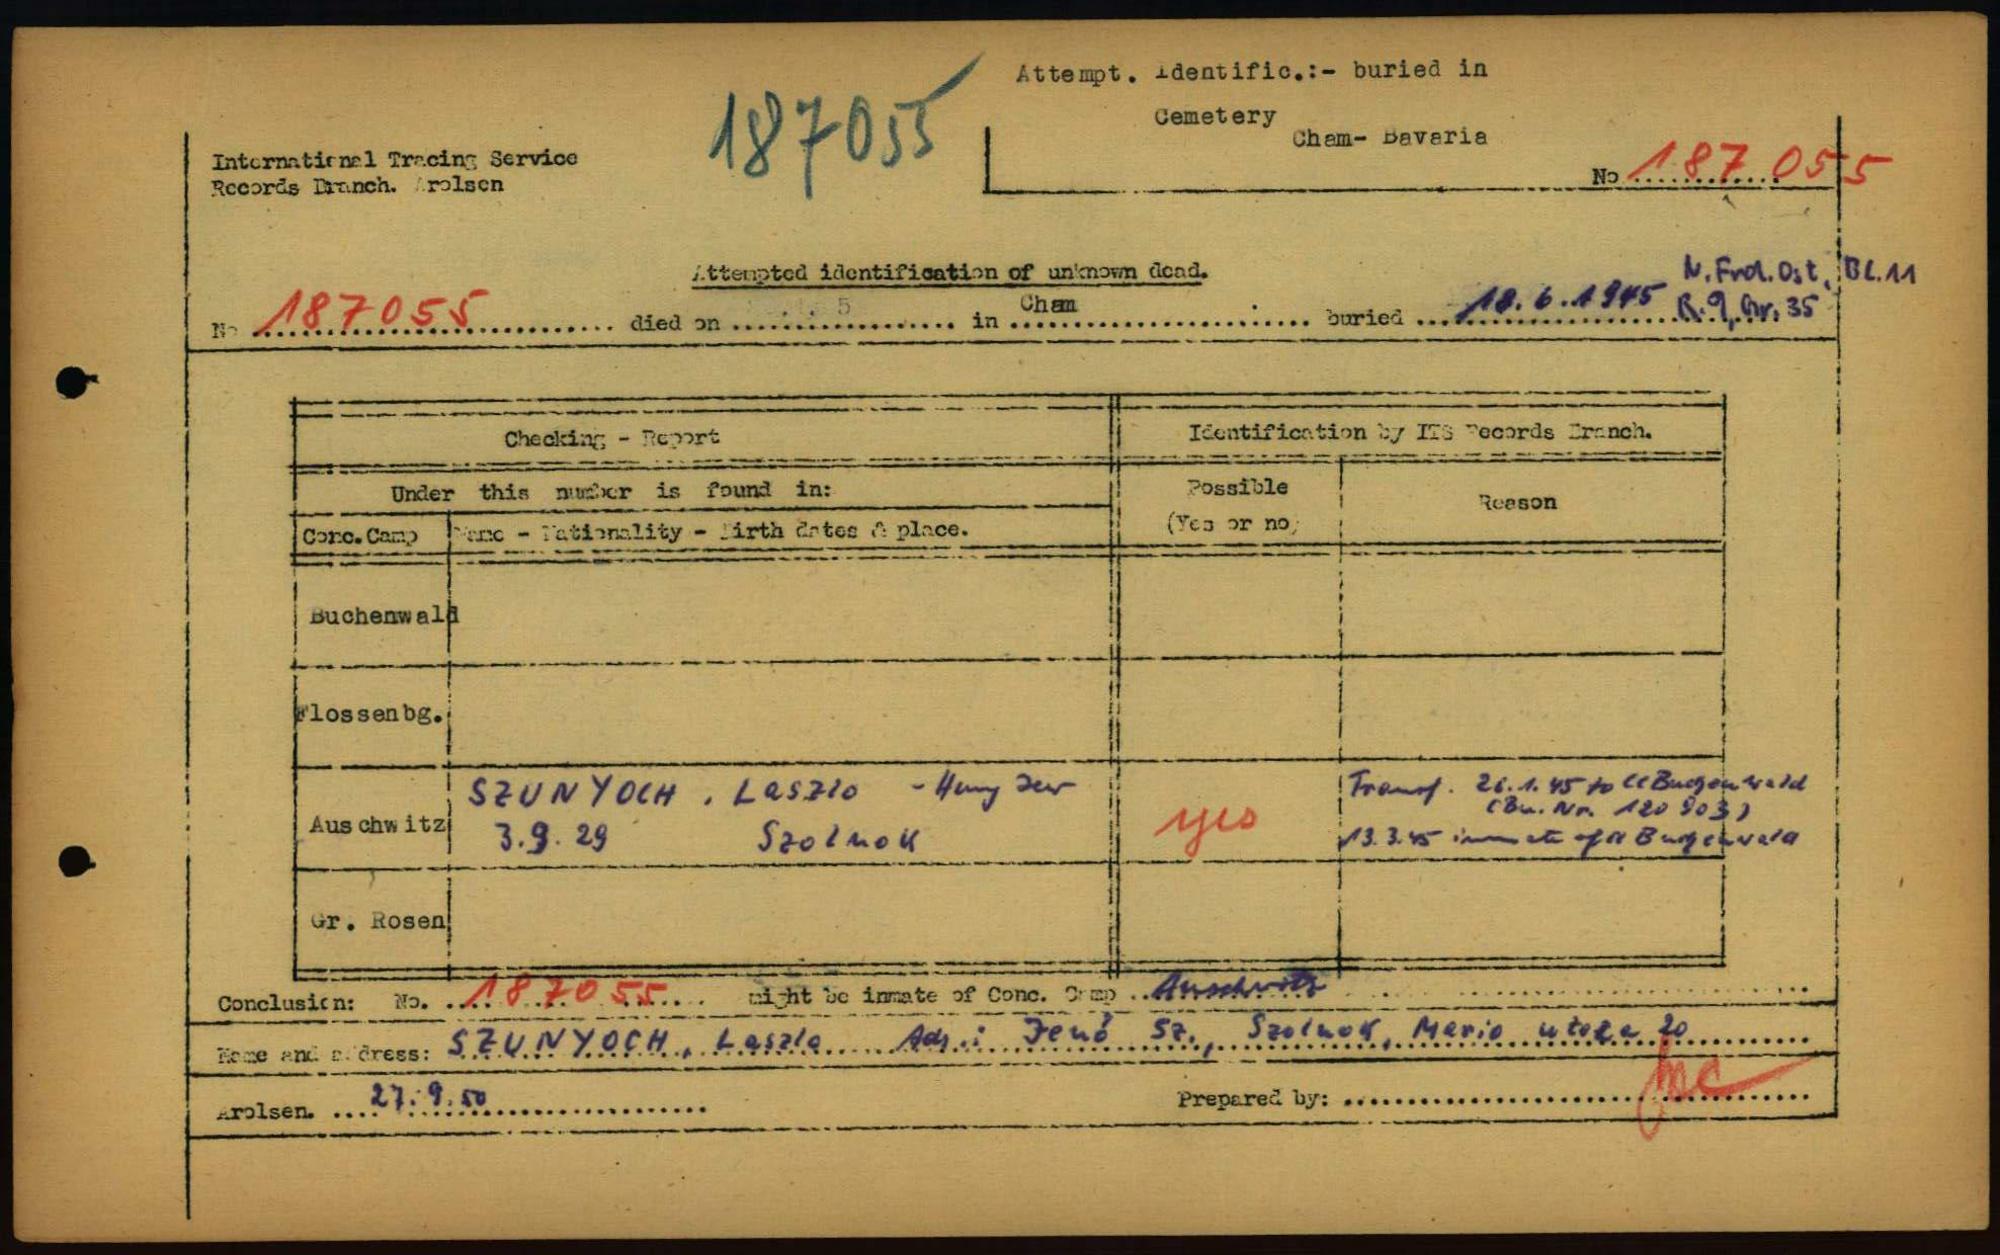 Attempt. Identific.:- buried in
Cemetery
Cham- Bavaria
187055
International Tracing Service
Records Branch. Arolsen
No 187 055
Attempted identification of unknown dead.
N. Frd. Ost, Bl. 11
No 187055 died on in Cham buried 18.6.1945 R. 9, Gr. 35
Checking - Report
Identification by ITS Records Branch.
Under this number is found in:
Possible
(Yes or no)
Reason
Conc.Camp
Name - Nationality - Birth dates & place.
Buchenwald
Flossenbg.
Auschwitz
SZUNYOCH, Laszlo - Hung Jew
3.9.29 Szolnok
yes
Transf. 26.1.45 to CC Buchenwald
(Bu. Nr. 120 903)
13.3.45 inmate of CC Buchenwald
Gr. Rosen
Conclusion: No. 187055 might be inmate of Conc. Camp Auschwitz
Name and address: SZUNYOCH, Laszlo Adr.: Jenö Sz., Szolnok, Mario utcza 20
Arolsen. 27.9.50
Prepared by: